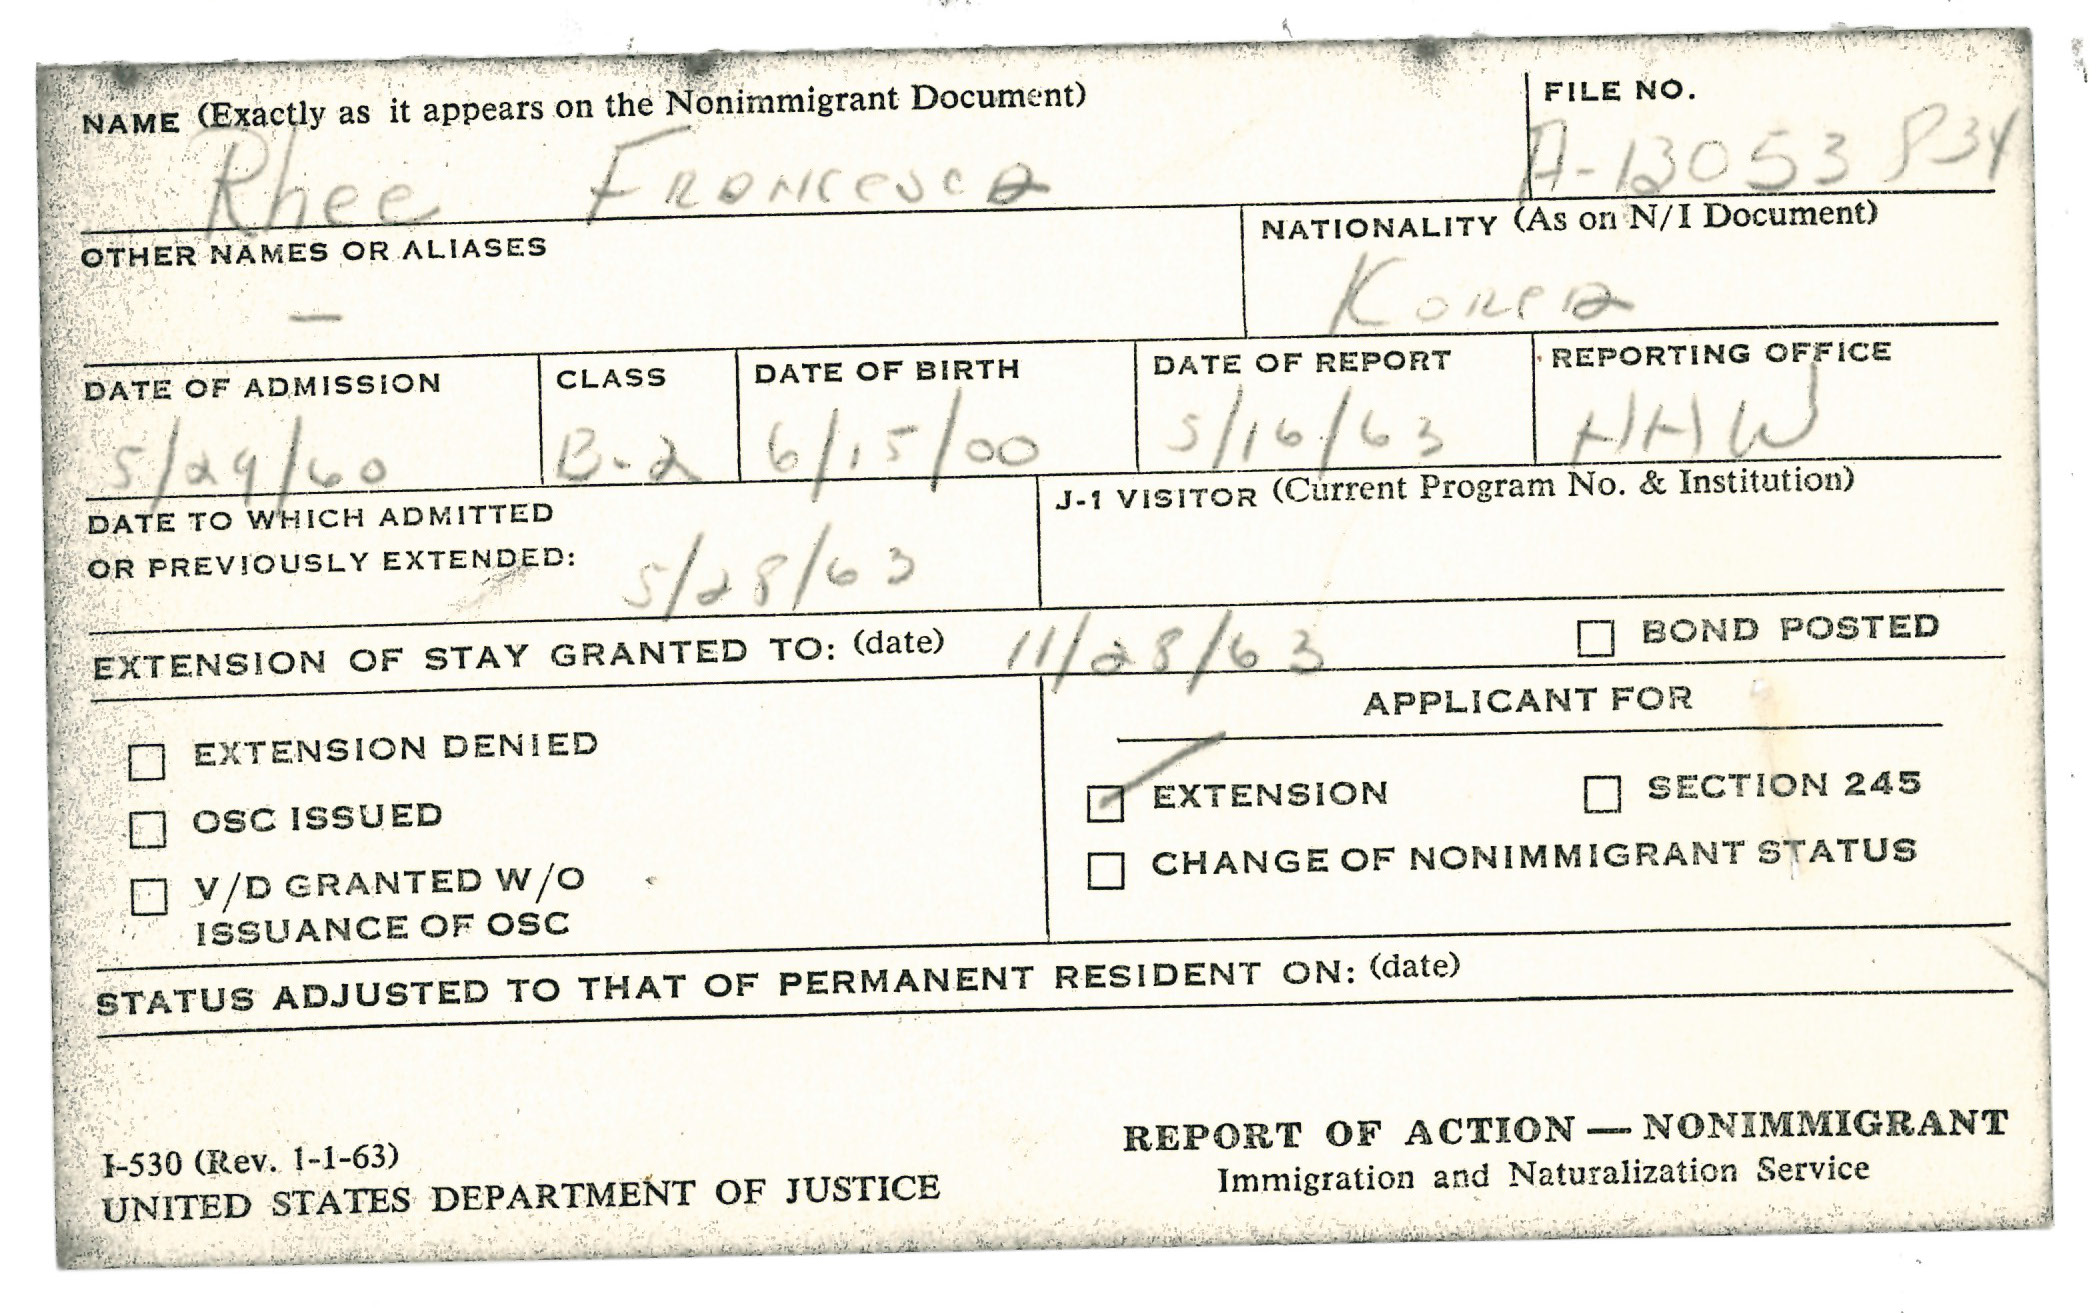 NAME (Exactly as it appears on the Nonimmigrant Document)
Rhee Francesca
FILE NO.
A-13053834
OTHER NAMES OR ALIASES
—
NATIONALITY (As on N/I Document)
Korea
DATE OF ADMISSION
5/29/60
CLASS
B-2
DATE OF BIRTH
6/15/00
DATE OF REPORT
5/16/63
REPORTING OFFICE
HHW
DATE TO WHICH ADMITTED
OR PREVIOUSLY EXTENDED: 5/28/63
J-1 VISITOR (Current Program No. & Institution)
EXTENSION OF STAY GRANTED TO: (date) 11/28/63
BOND POSTED
EXTENSION DENIED
OSC ISSUED
V/D GRANTED W/O
ISSUANCE OF OSC
APPLICANT FOR
EXTENSION
SECTION 245
CHANGE OF NONIMMIGRANT STATUS
STATUS ADJUSTED TO THAT OF PERMANENT RESIDENT ON: (date)
I-530 (Rev. 1-1-63)
UNITED STATES DEPARTMENT OF JUSTICE
REPORT OF ACTION — NONIMMIGRANT
Immigration and Naturalization Service